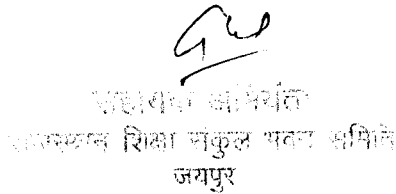 सहायक अभियंता
राजस्थान शिक्षा संकुल भवन समिति
जयपुर